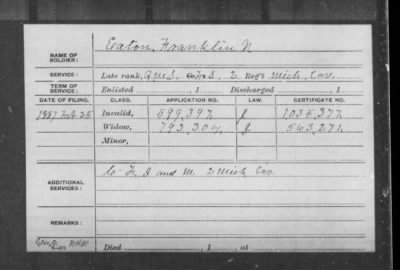 NAME OF SOLDIER: Eaton, Franklin N
SERVICE: Late rank, Q.M.S., Co. F & S, 2 Reg't Mich. Cav.
TERM OF SERVICE: Enlisted , 1 Discharged , 1
DATE OF FILING. CLASS. APPLICATION NO. LAW. CERTIFICATE NO.
1887 Feb 25 Invalid, 599,397 J 1,035,377
Widow, 793,304 J 543,271
Minor,
ADDITIONAL SERVICES: Co F, I and M 2 Mich Cav.
REMARKS:
Died , 1 , at